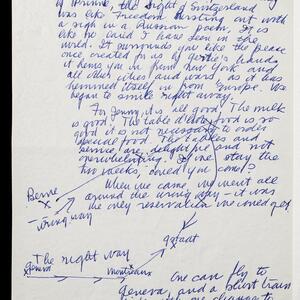 of
was like Freedom bursting out with
a sigh in a Russian poem. It is
like no land I have seen in the
world. It surrounds you like the peace
once created for us by Gertie's hands,
it hems you in from New York and
all other cities and wars, as it has
hemmed itself in from Europe. We
began to smile right away.
For Jenny it is all good. The milk
is good. The table d'hote food is so
good it is not necessary to order
special food. The tables and
service are delightful and not
overwhelming. If we stay the
two weeks, could you come?
When we came we went all
around the wrong way - it was
the only reservation we could get.
Berne
wrong way
gstaadt
The right way
Geneva
montreux
One can fly to
Geneva, and a short train